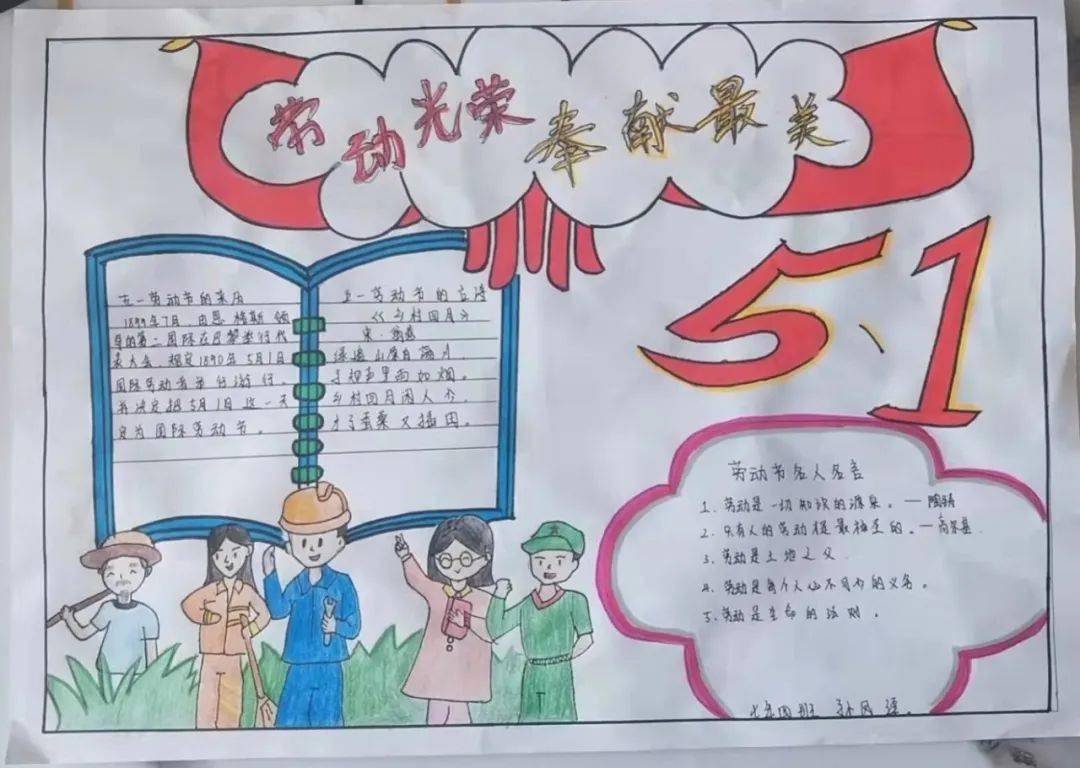 劳动光荣 奉献最美
5、1
五一劳动节的来历
1899年7月，由恩格斯领
导的第二国际在巴黎举行代
表大会，规定1890年5月1日
国际劳动者举行游行，
并决定把5月1日这一天
定为国际劳动节。
五一劳动节的古诗
《乡村四月》
宋·翁卷
绿遍山原白满川，
子规声里雨如烟。
乡村四月闲人少，
才了蚕桑又插田。
劳动节名人名言
1、劳动是一切知识的源泉。—陶铸
2、只有人的劳动才是最神圣的。—高尔基
3、劳动是土地之父
4、劳动是每个人必不可少的义务。
5、劳动是生命的法则。
七年四班